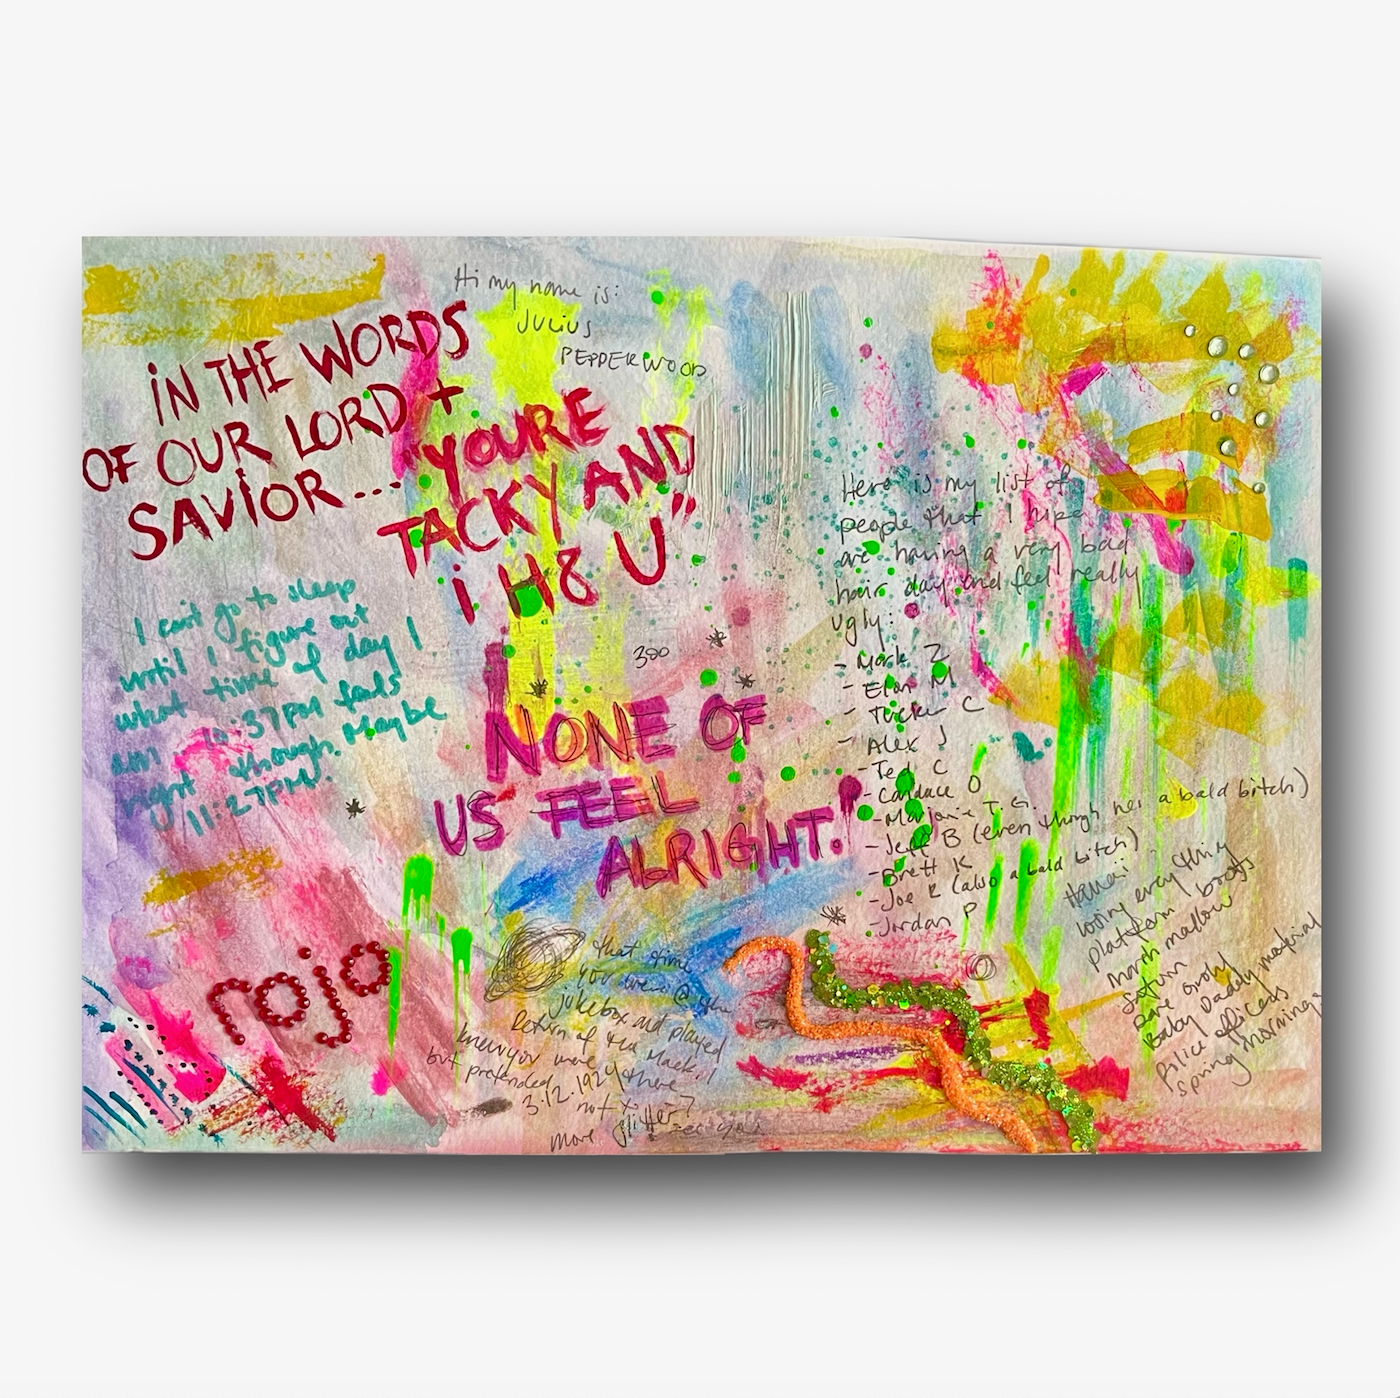 Hi my name is:
Julius
PEPPERWOOD
iN THE WORDS
OF OUR LORD +
SAViOR... "YOURE
TACKY AND
i H8 U"
I can't go to sleep
until I figure out
what time of day I
am 10:37PM feels
right though. Maybe
11:27PM.
300
NONE OF
US FEEL
ALRIGHT!
rojo
that time
you were @ the
jukebox and played
Return of the Mack. I
knew you were there
but pretended
3.12.1924
not to
more glitter?
see you
Here is my list of
people that I hope
are having a very bad
hair day and feel really
ugly:
- Mark Z
- Elon M
- Tucker C
- Alex J
- Ted C
- Candace O
- Marjorie T. G.
- Jeff B (even though hes a bald bitch)
- Brett K
- Joe R (also a bald bitch)
- Jordan P
Hawaii
losing everything
platform boots
marsh mallow
Saturn
pure
Baby Daddy material
Police officers
spring mornings